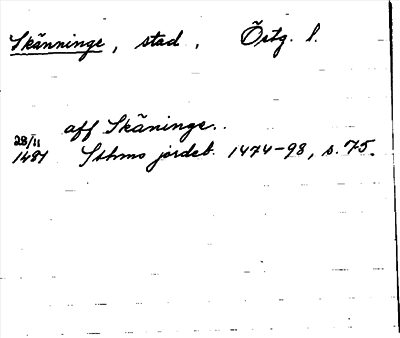 Skänninge, stad, Östg. l.
aff Skäninge..
28/11
1481 Sthms jordeb. 1474-98, s. 75.